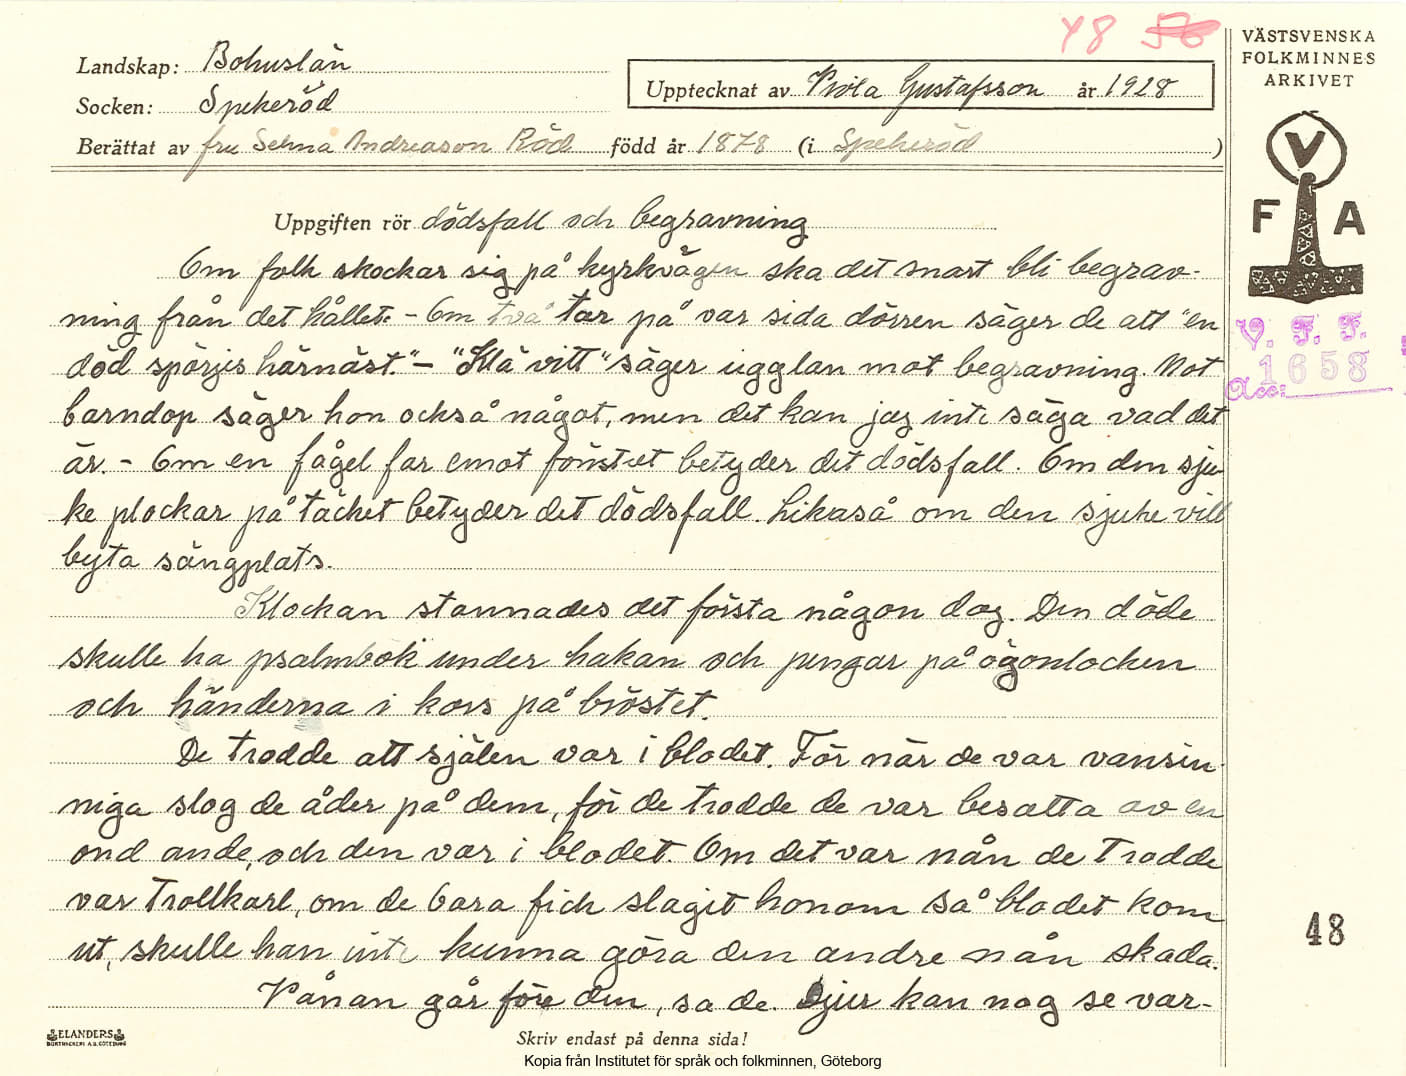 48 56
VÄSTSVENSKA
FOLKMINNES
ARKIVET
Landskap: Bohuslän
Socken: Spekeröd
Upptecknat av Viola Gustafsson år 1928
Berättat av fru Selma Andreason Röd född år 1878 (i Spekeröd )
Uppgiften rör dödsfall och begravning
V
F A
Om folk skockar sig på kyrkvägen ska det snart bli begrav-
ning från det hållet. - Om två tar på var sida dörren säger de att "en
död spörjes härnäst." - "Klä vitt" säger ugglan mot begravning. Mot
barndop säger hon också något, men det kan jag inte säga vad det
är. - Om en fågel far emot fönstret betyder det dödsfall. Om den sju-
ke plockar på täcket betyder det dödsfall. Likaså om den sjuke vill
byta sängplats.
V. F. F.
Acc: 1658
Klockan stannades det första någon dog. Den döde
skulle ha psalmbok under hakan och pengar på ögonlocken
och händerna i kors på bröstet.
De trodde att själen var i blodet. För när de var vansin-
niga slog de åder på dem, för de trodde de var besatta av en
ond ande, och den var i blodet. Om det var nån de trodde
var trollkarl, om de bara fick slagit honom så blodet kom
ut, skulle han inte kunna göra den andre nån skada.
Vånan går före den, sa de. Djur kan nog se var-
48
ELANDERS
BOKTRYCKERI A.B. GÖTEBORG
Skriv endast på denna sida!
Kopia från Institutet för språk och folkminnen, Göteborg